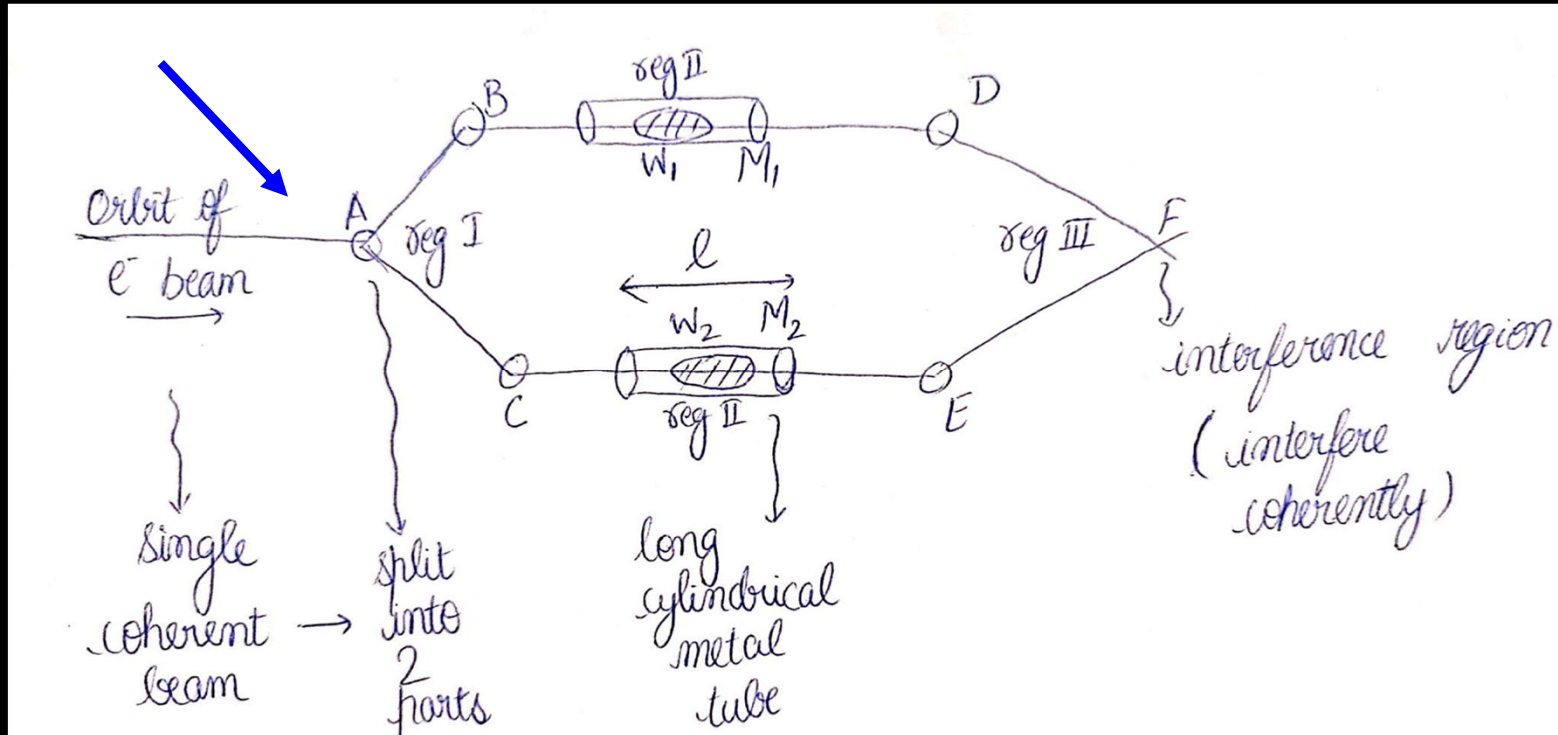 reg II
B
D
W₁ M₁
Orbit of
e⁻ beam
A
reg I
reg III
F
l
W₂ M₂
C
reg II
E
interference region
(interfere
coherently)
single
coherent → 
beam
split
into
2
parts
long
cylindrical
metal
tube